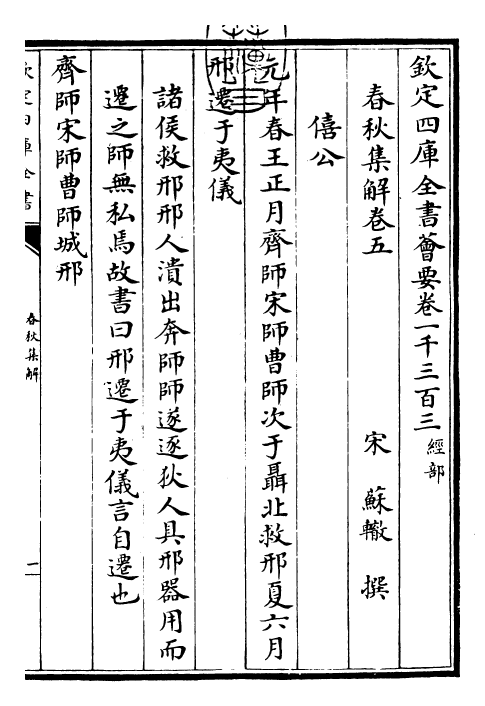 欽定四庫全書薈要卷一千三百三 經部
春秋集解卷五 宋 蘇轍 撰
僖公
元年春王正月齊師宋師曹師次于聶北救邢夏六月
邢遷于夷儀
諸侯救邢邢人潰出奔師師遂逐狄人具邢器用而
遷之師無私焉故書曰邢遷于夷儀言自遷也
齊師宋師曹師城邢
欽定四庫全書
春秋集解
一